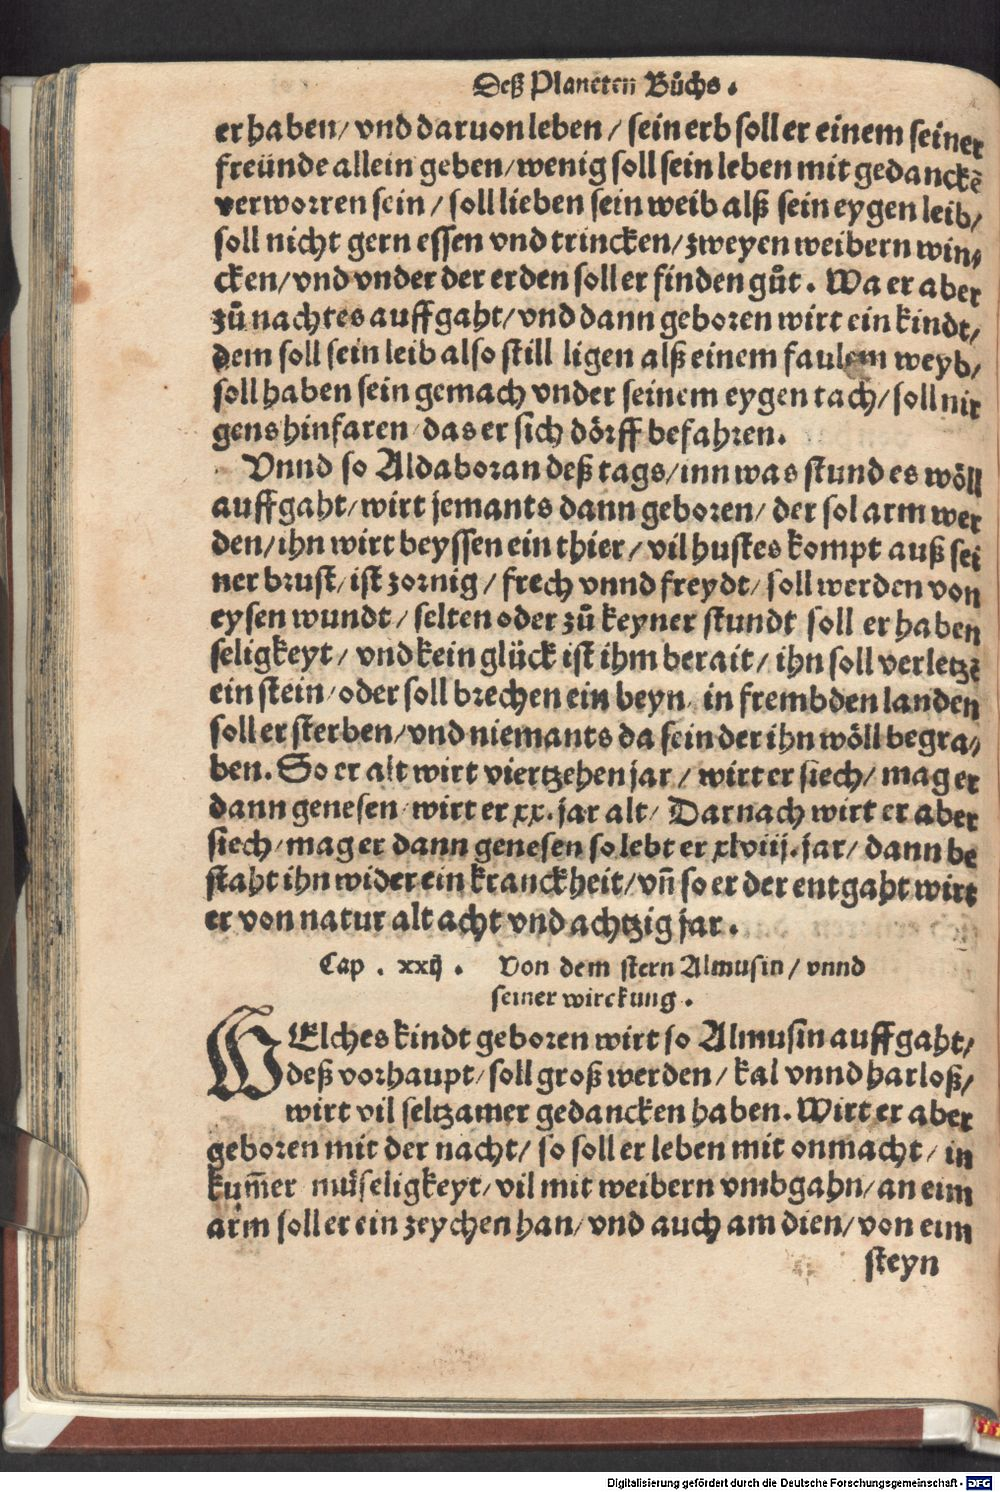 Deß Planeten Bůchs.
erhaben/ vnd daruon leben/ sein erb soll er einem seiner
freünde allein geben/ wenig soll sein leben mit gedanckē
verworren sein/ soll lieben sein weib alß sein eygen leib/
soll nicht gern essen vnd trincken/ zweyen weibern win⸗
cken/ vnd vnder der erden soll er finden gůt. Wa er aber
zů nachtes auffgaht/ vnd dann geboren wirt ein kindt/
dem soll sein leib also still ligen alß einem faulem weyb/
soll haben sein gemach vnder seinem eygen tach/ soll nir
gens hinfaren das er sich dörff befahren.
Vnnd so Aldaboran deß tags/ inn was stund es wöll
auffgaht/ wirt jemants dann geboren/ der sol arm wer
den/ ihn wirt beyssen ein thier/ vil hustes kompt auß sei
ner brust/ ist zornig/ frech vnnd freydt/ soll werden von
eysen wundt/ selten oder zů keyner stundt soll er haben
seligkeyt/ vnd kein glück ist ihm berait/ ihn soll verletzē
ein stein/ oder soll brechen ein beyn/ in frembden landen
soll er sterben/ vnd niemants da sein der ihn wöll begra⸗
ben. So er alt wirt viertzehen jar/ wirt er siech/ mag er
dann genesen/ wirt er xx. jar alt/ Darnach wirt er aber
siech/ mag er dann genesen so lebt er xlviij. jar/ dann be
staht ihn wider ein kranckheit/ vn̄ so er der entgaht wirt
er von natur alt acht vnd achtzig jar.
Cap. xxij. Von dem stern Almusin/ vnnd
seiner wirckung.
WElches kindt geboren wirt so Almusin auffgaht/
deß vorhaupt/ soll groß werden/ kal vnnd harloß/
wirt vil seltzamer gedancken haben. Wirt er aber
geboren mit der nacht/ so soll er leben mit onmacht/ in
kum̄er müseligkeyt/ vil mit weibern vmbgahn/ an eim
arm soll er ein zeychen han/ vnd auch am dien/ von eim
steyn
Digitalisierung gefördert durch die Deutsche Forschungsgemeinschaft - DFG